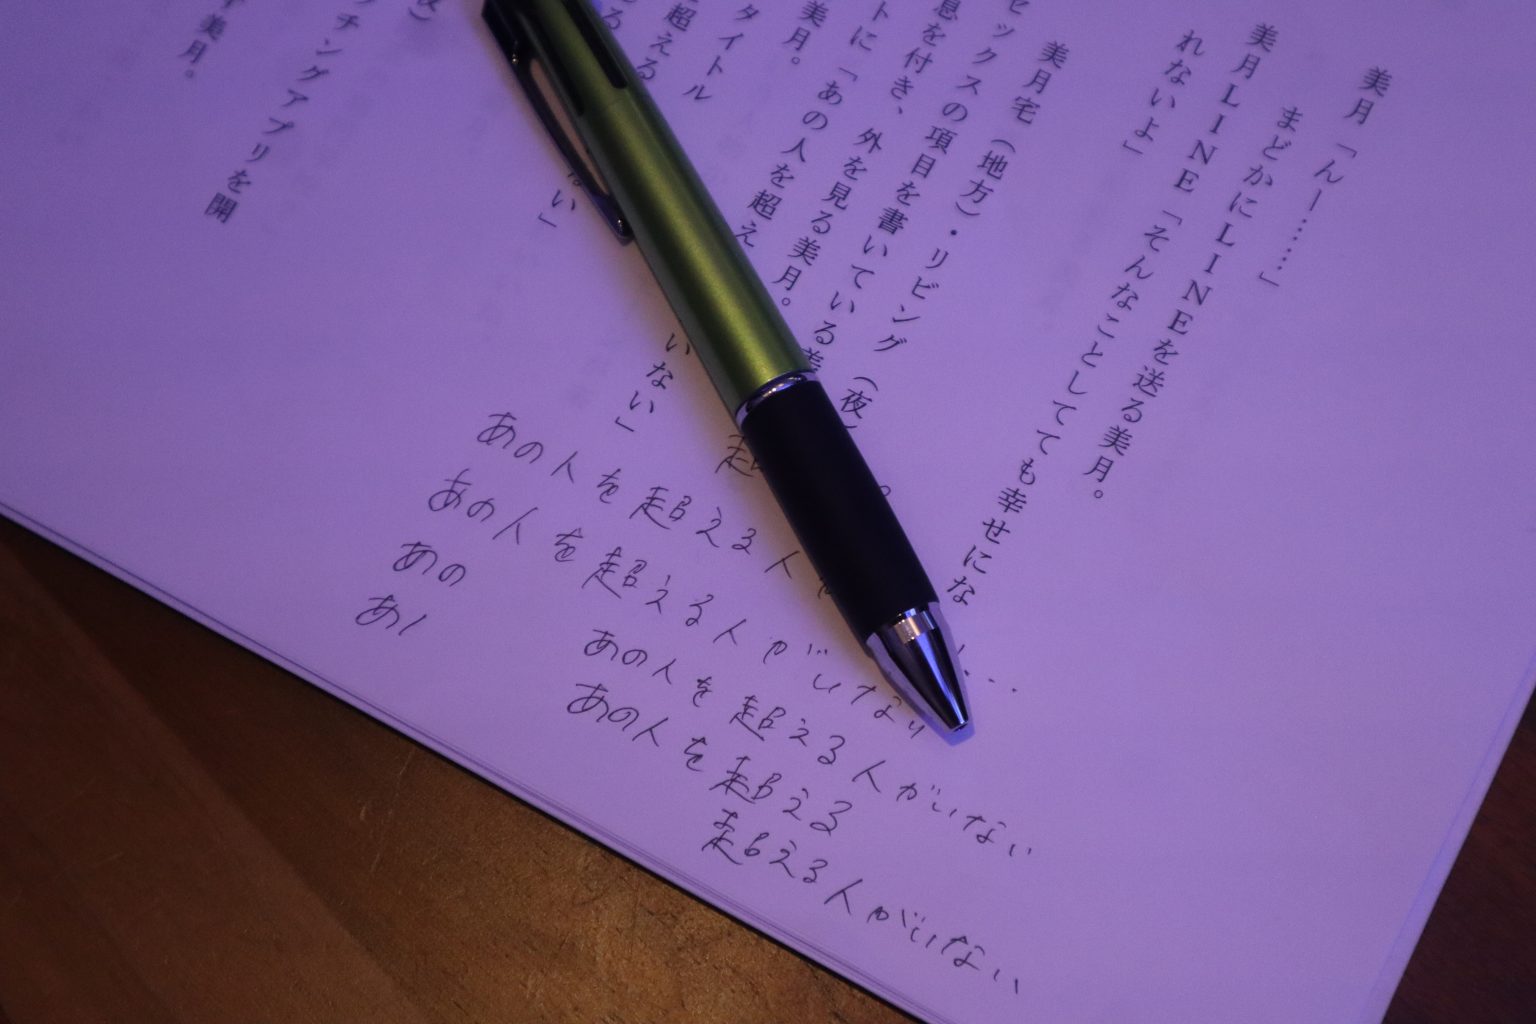 美月「んー……」
まどかにLINEを送る美月。
美月LINE「そんなことしてても幸せにな
れないよ」
美月宅（地方）・リビング（夜）
セックスの項目を書いている美
息を付き、外を見る美月。
トに「あの人を超え
美月。
タイトル
超える
いない」
る
ない」
チングアプリを開
美月。
あの人を超える人
あの人を超える人がいない
あの
あ
あの人を超える人がいない
あの人を超える
超える人がいない